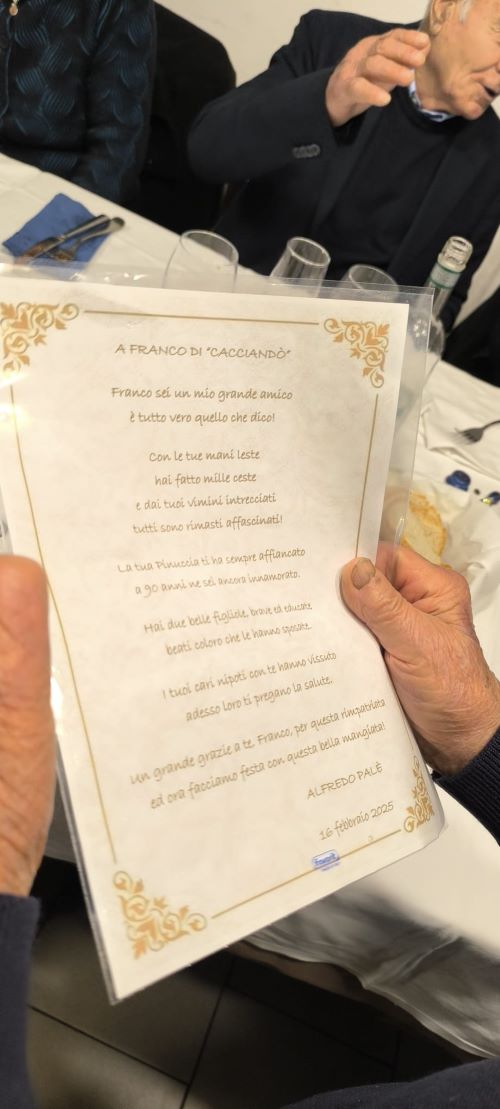 A FRANCO DI "CACCIANDÒ"
Franco sei un mio grande amico
è tutto vero quello che dico!
Con le tue mani leste
hai fatto mille ceste
e dai tuoi vimini intrecciati
tutti sono rimasti affascinati!
La tua Pinuccia ti ha sempre affiancato
a 90 anni ne sei ancora innamorato.
Hai due belle figliole, brave ed educate
beati coloro che le hanno sposate.
I tuoi cari nipoti con te hanno vissuto
adesso loro ti pregano la salute.
Un grande grazie a te, Franco, per questa rimpatriata
ed ora facciamo festa con questa bella mangiata!
ALFREDO PALÈ
16 febbraio 2025